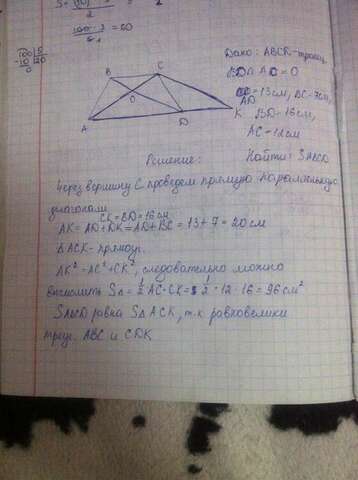 2
100 5
-10 20
0
= 60
B
C
O
A
D
K
Дано: ABCD-трапец
BD ∩ AC = O
AD = 13см, BC = 7см,
BD = 16см,
AC = 12см
Решение:
Найти: SABCD
Через вершину C проведем прямую параллельную
диагонали
CK = BD = 16см
AK = AD + DK = AD + BC = 13 + 7 = 20см
ΔACK - прямоуг.
AK² = AC² + CK², следовательно можно
вычислить SΔ = 1/2 AC · CK = 1/2 · 12 · 16 = 96см²
SABCD равна SΔACK, т.к равновелики
треуг. ABC и CDK